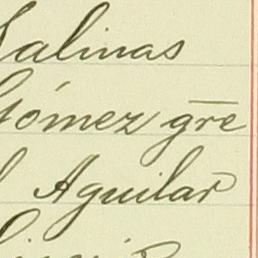 Salinas
Gómez gre
Aguilar